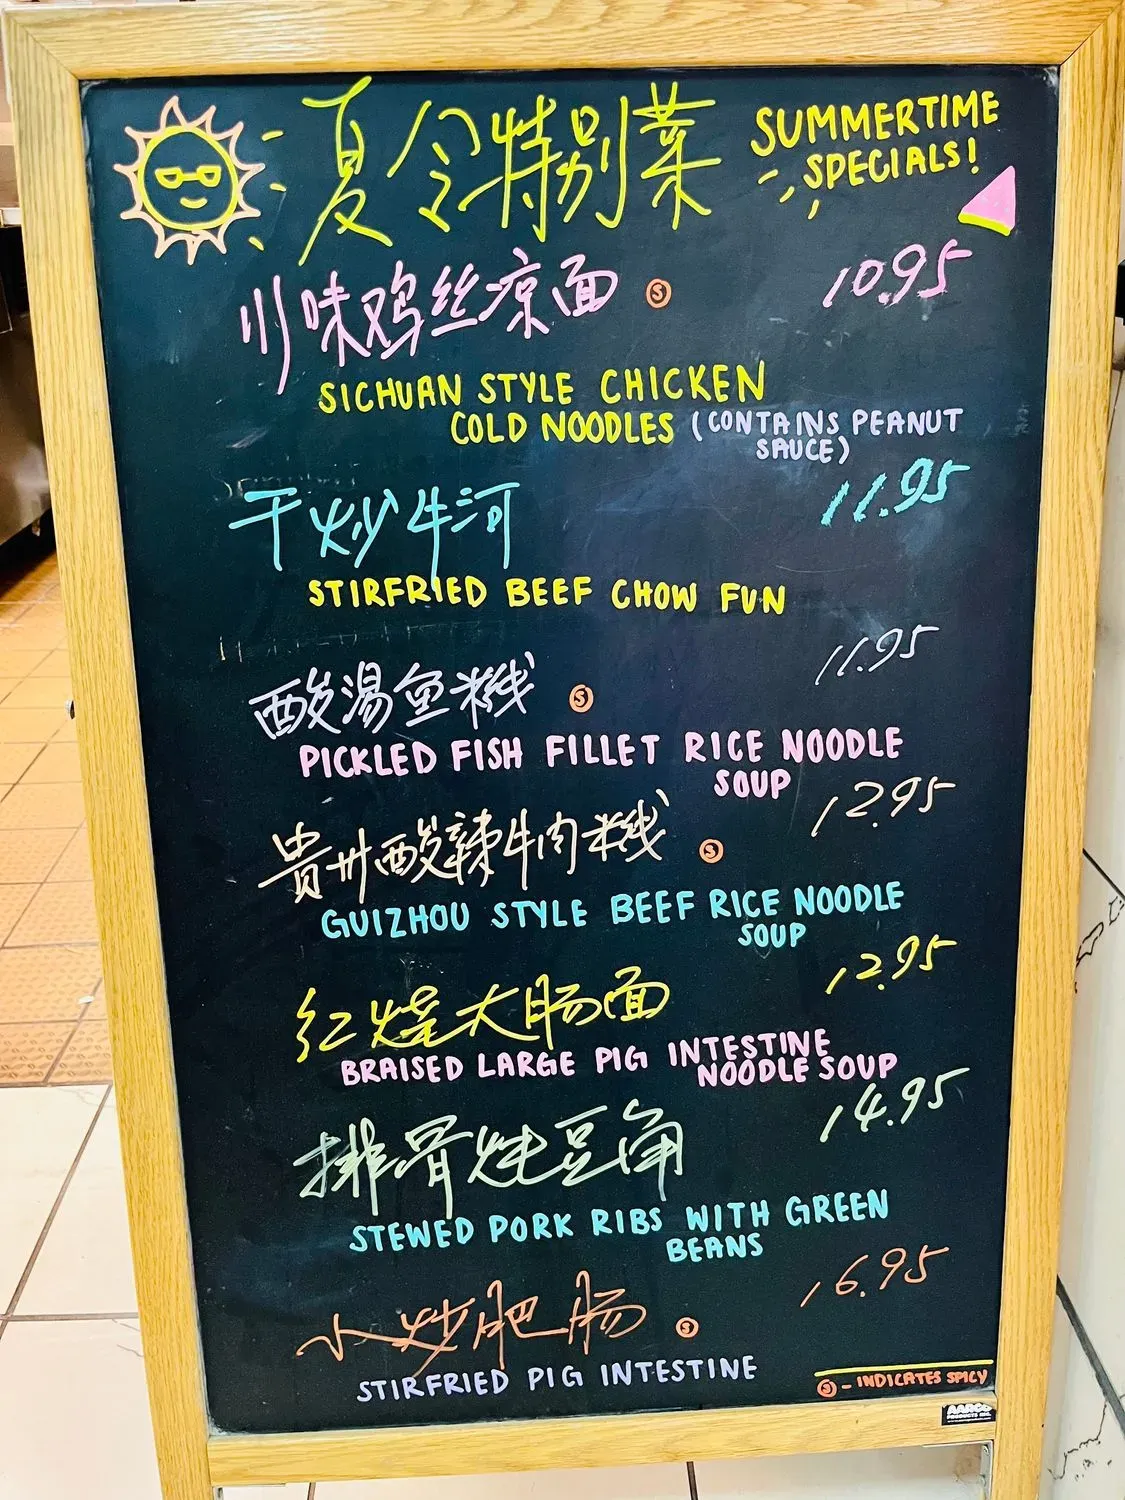 夏令特别菜
SUMMERTIME
SPECIALS!
川味鸡丝凉面 Ⓢ 10.95
SICHUAN STYLE CHICKEN
COLD NOODLES (CONTAINS PEANUT
SAUCE)
干炒牛河 11.95
STIRFRIED BEEF CHOW FUN
酸湯鱼 Ⓢ 11.95
PICKLED FISH FILLET RICE NOODLE
SOUP
贵州酸辣牛肉 Ⓢ 12.95
GUIZHOU STYLE BEEF RICE NOODLE
SOUP
红烧大肠面 12.95
BRAISED LARGE PIG INTESTINE
NOODLE SOUP
排骨炖豆角 14.95
STEWED PORK RIBS WITH GREEN
BEANS
小炒肥肠 Ⓢ 16.95
STIRFRIED PIG INTESTINE
Ⓢ - INDICATES SPICY
AARCO
PRODUCTS INC.